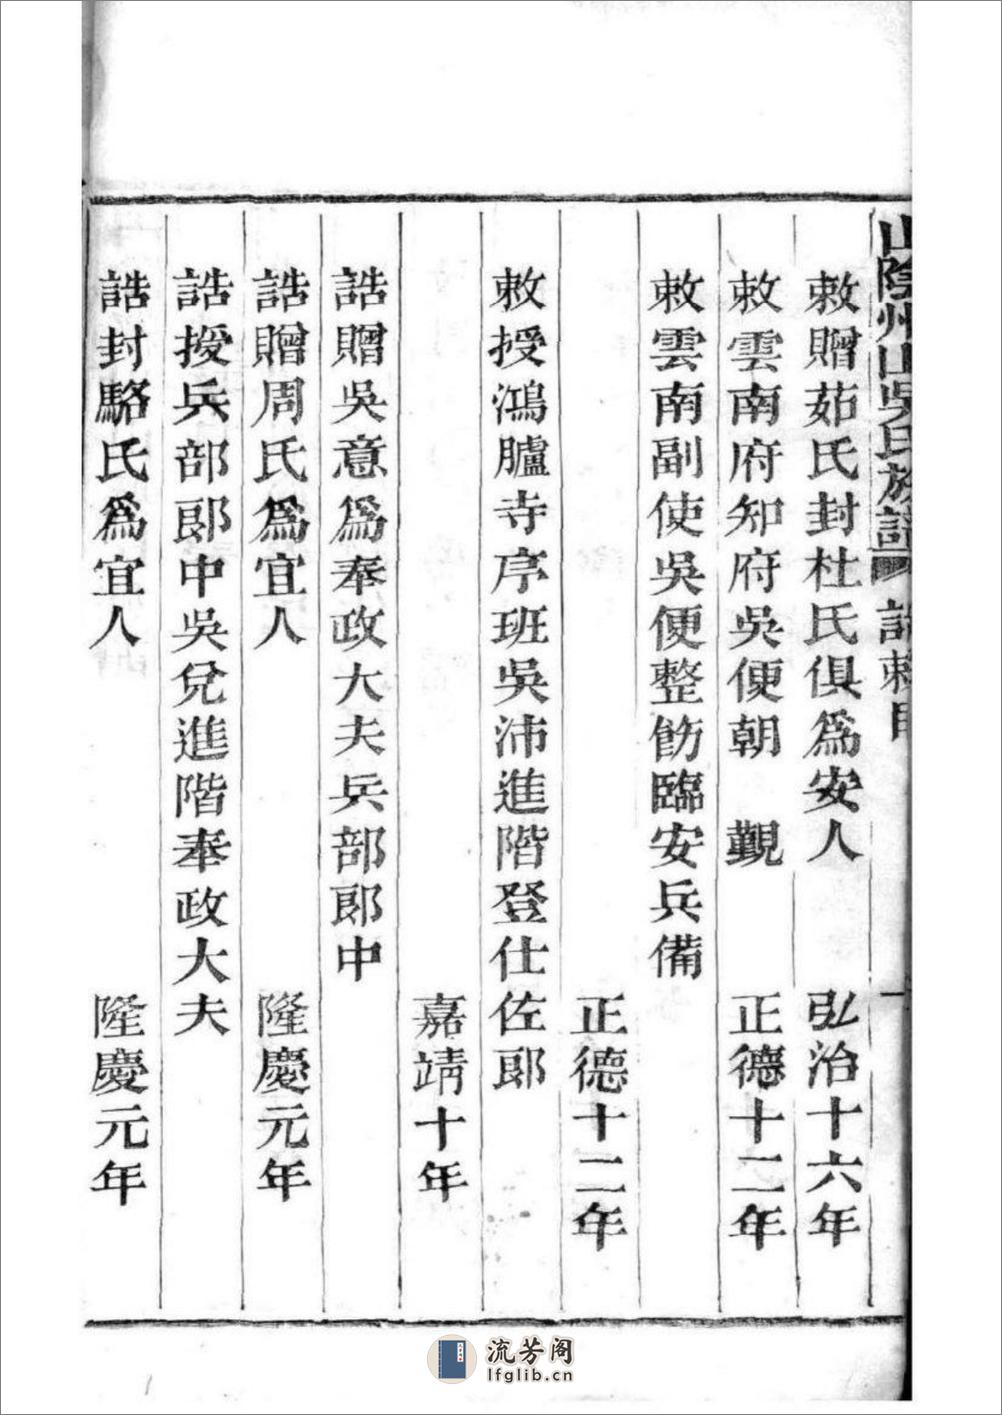 山陰州山吳氏族譜 誥敕目 一
敕贈茹氏封杜氏俱爲安人 弘治十六年
敕雲南府知府吳便朝 覲 正德十二年
敕雲南副使吳便整飭臨安兵備
正德十二年
敕授鴻臚寺序班吳沛進階登仕佐郎
嘉靖十年
誥贈吳意爲奉政大夫兵部郎中
誥贈周氏爲宜人 隆慶元年
誥授兵部郎中吳兌進階奉政大夫
誥封駱氏爲宜人 隆慶元年
流芳阁
lfglib.cn